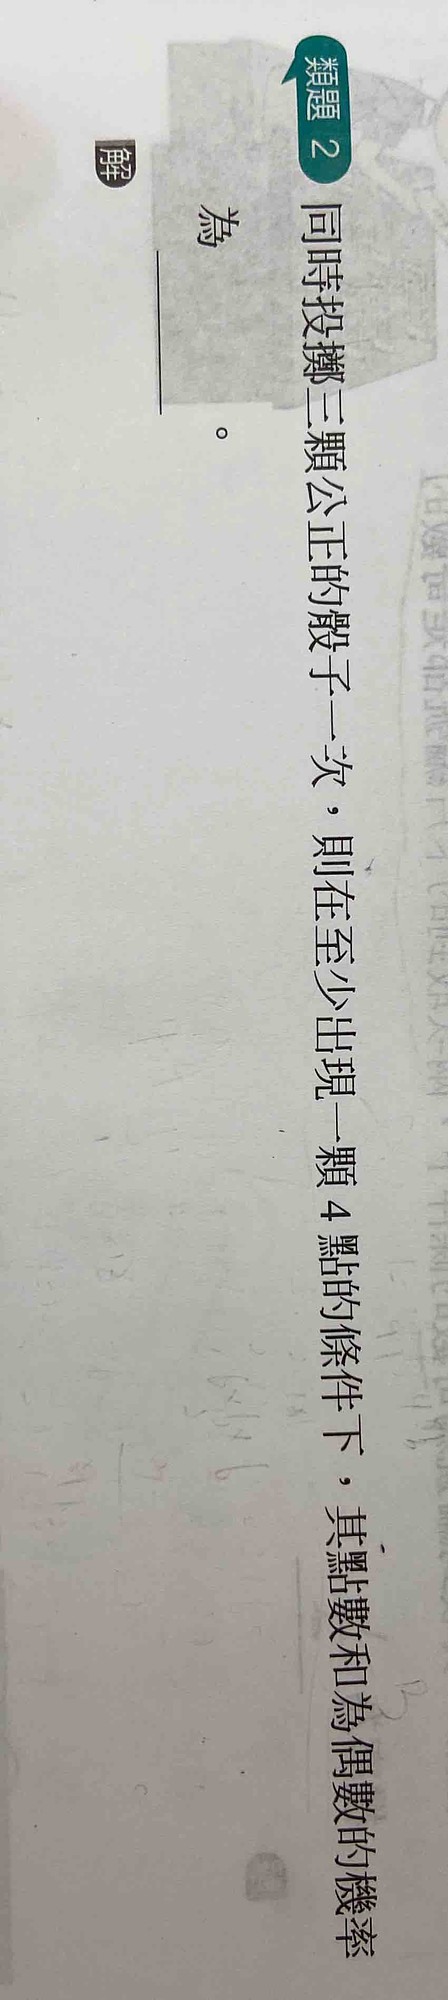 類題 2 同時投擲三顆公正的骰子一次，則在至少出現一顆 4 點的條件下，其點數和為偶數的機率
為＿＿＿＿。
解